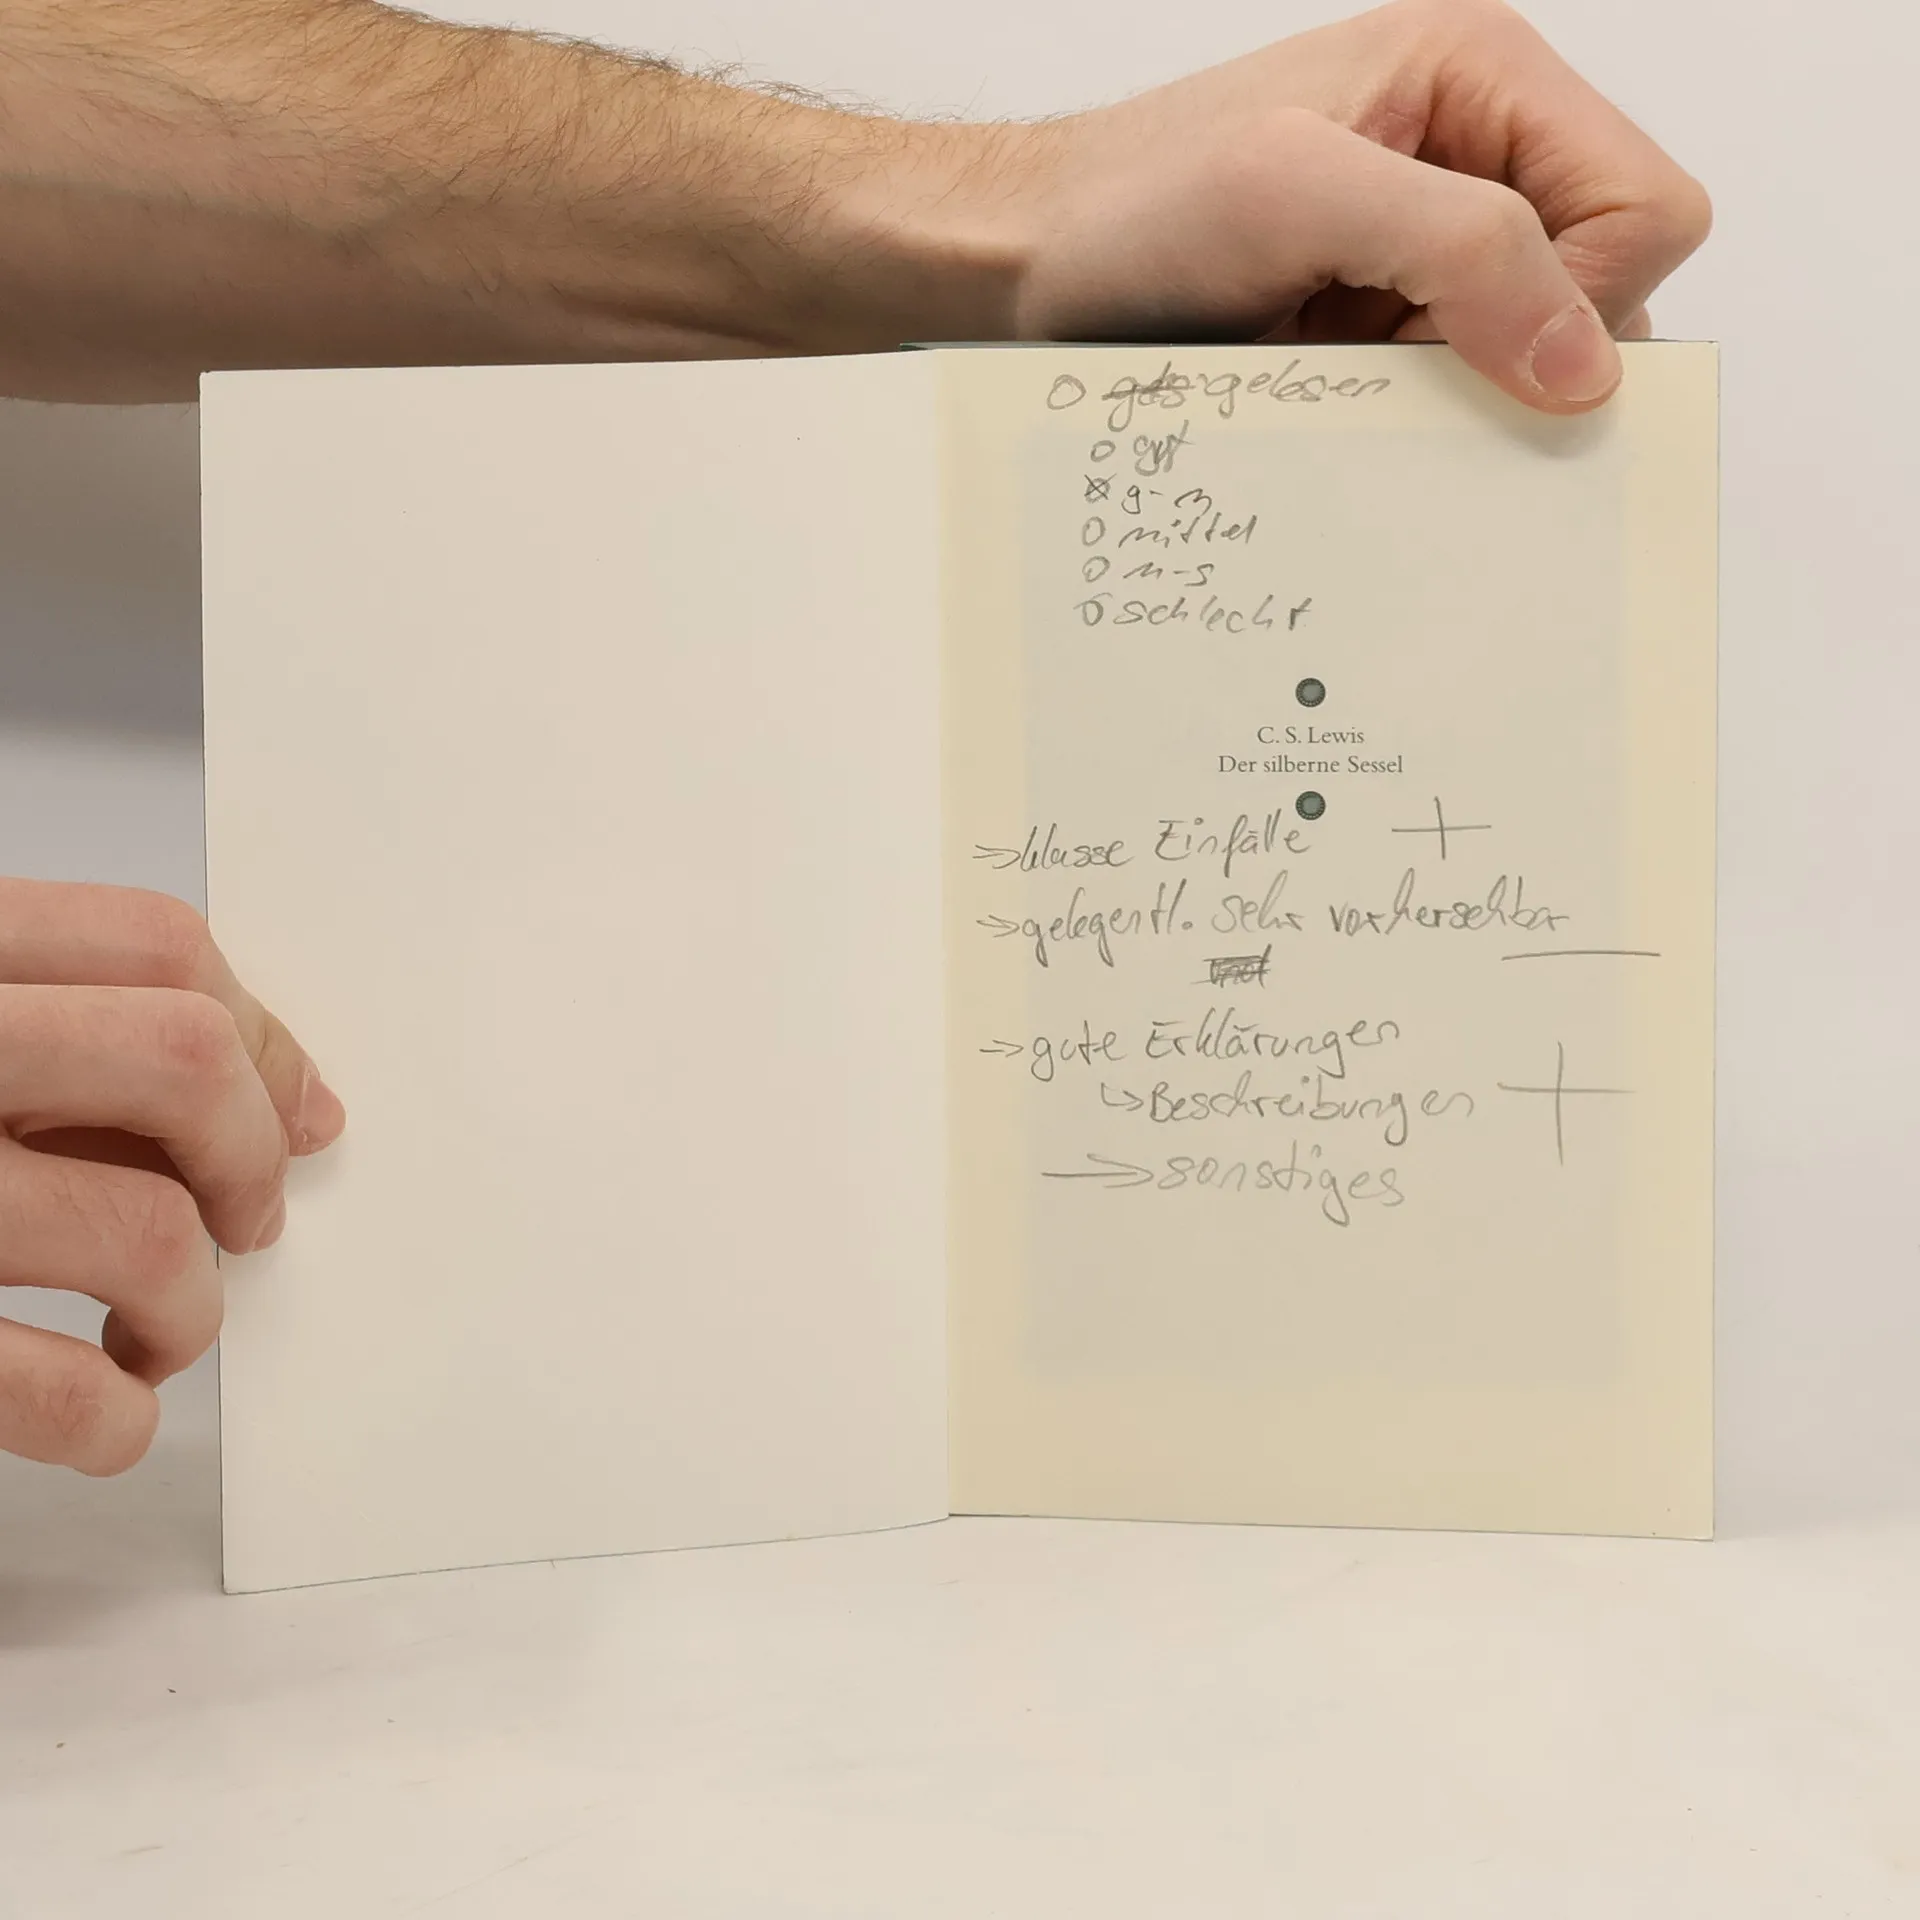 O gelesen
O gut
⊗ g-m
O mittel
O m-s
O schlecht
C. S. Lewis
Der silberne Sessel
→ klasse Einfälle +
→ gelegentl. sehr vorhersehbar —
→ gute Erklärungen
↳ Beschreibungen +
→ sonstiges